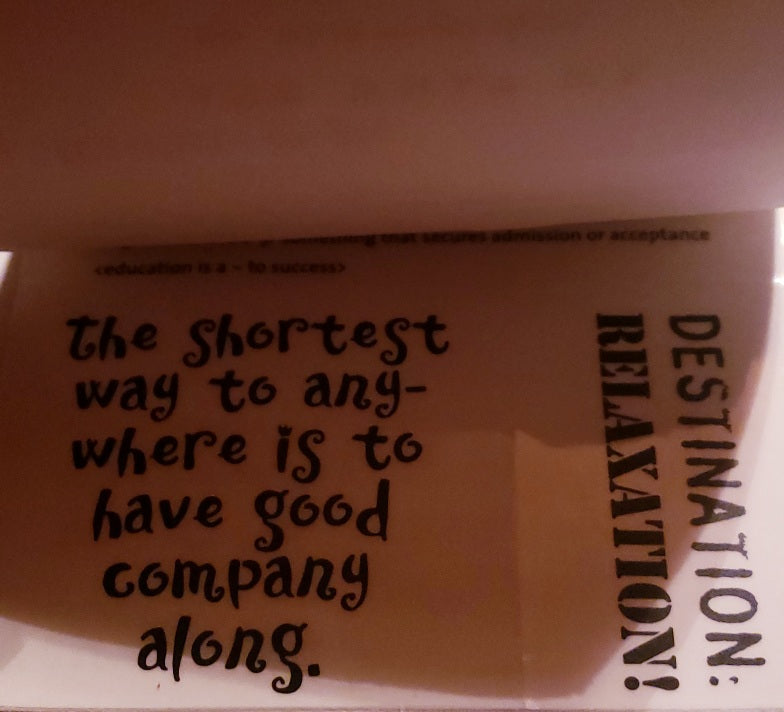 something that secures admission or acceptance
<education is a ~ to success>
the shortest
way to any-
where is to
have good
company
along.
DESTINATION:
RELAXATION!